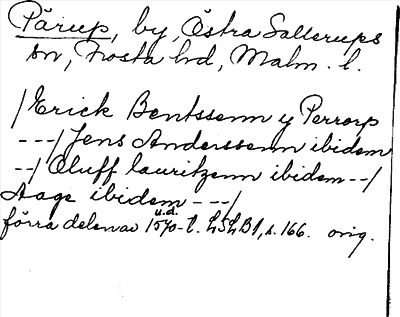 Pärup, by, Östra Sallerups
sn, Frosta hd, Malm. l.
/Erick Bentssenn y Perrorp
---/Jens Anderssenn ibidem
--/Oluff lauritzenn ibidem--/
Aage ibidem ---/
u.d.
förra delen av 1570-t. LSLB1, s. 166. orig.